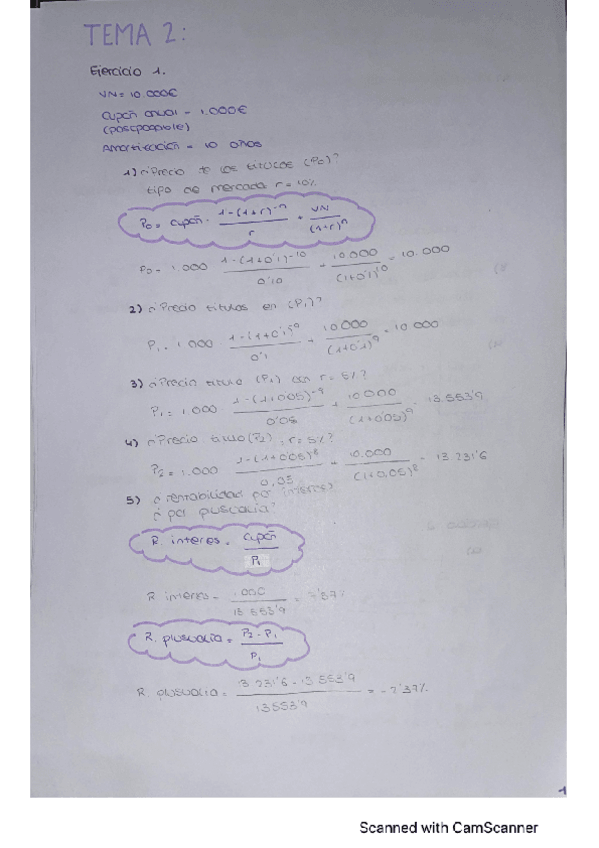 TEMA 2:
Ejercicio 1.
VN = 10.000€
Cupón anual = 1.000€
(postpagable)
Amortización = 10 años
1) ¿Precio de los títulos (P0)?
tipo de mercado r = 10%
P0 = cupón · 1-(1+r)^-n / r + VN / (1+r)^n
P0 = 1.000 1-(1+0'1)^-10 / 0'10 + 10.000 / (1+0'1)^10 = 10.000
2) ¿Precio títulos en (P1)?
P1 = 1.000 1-(1+0'1)^-9 / 0'1 + 10.000 / (1+0'1)^9 = 10.000
3) ¿Precio título (P1) con r = 5%?
P1 = 1.000 1-(1+0'05)^-9 / 0'05 + 10.000 / (1+0'05)^9 = 13.553'9
4) ¿Precio título (P2), r = 5%?
P2 = 1.000 1-(1+0,05)^8 / 0,05 + 10.000 / (1+0,05)^8 = 13.231'6
5) ¿rentabilidad por interés)
¿ por plusvalía?
R. interes = cupón / P1
R interes = 1.000 / 13.553'9 = 7'37%
R. plusvalía = P2 - P1 / P1
R. plusvalía = 13.231'6 - 13.553'9 / 13553'9 = -2'37%
1
Scanned with CamScanner